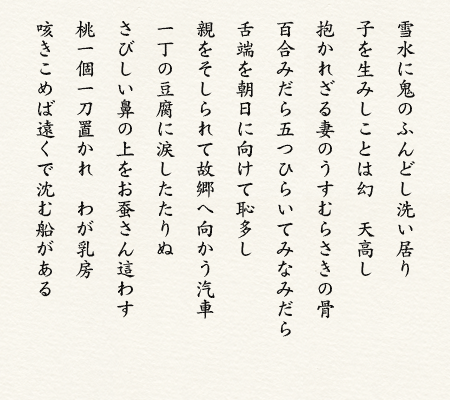 雪水に鬼のふんどし洗い居り
子を生みしことは幻　天高し
抱かれざる妻のうすむらさきの骨
百合みだら五つひらいてみなみだら
舌端を朝日に向けて恥多し
親をそしられて故郷へ向かう汽車
一丁の豆腐に涙したたりぬ
さびしい鼻の上をお蚕さん這わす
桃一個一刀置かれ　わが乳房
咳きこめば遠くで沈む船がある